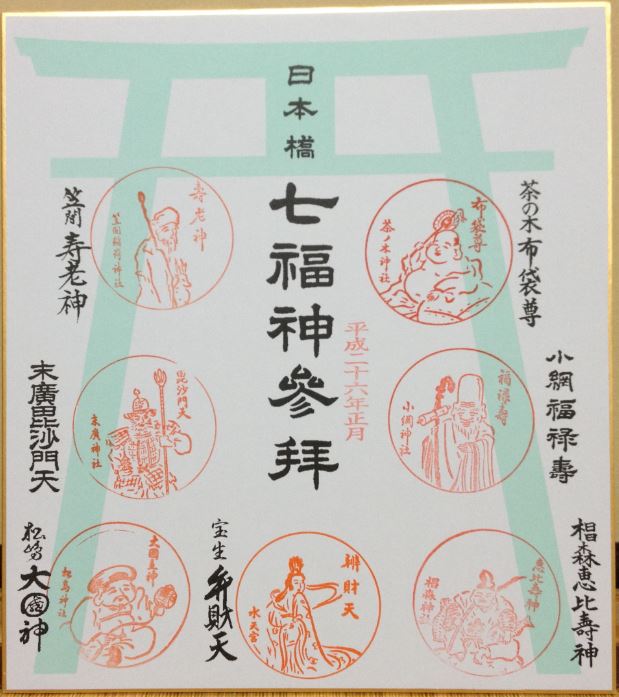 日本橋
七福神參拜
平成二十六年正月
茶の木 布袋尊
布袋尊
茶ノ木神社
小網福祿壽
福禄寿
小網神社
椙森恵比壽神
恵比寿神
椙森神社
宝生 弁財天
辨財天
水天宮
笠間 寿老神
寿老神
笠間稲荷神社
末廣毘沙門天
毘沙門天
末廣神社
松嶋 大國神
大國主神
松島神社